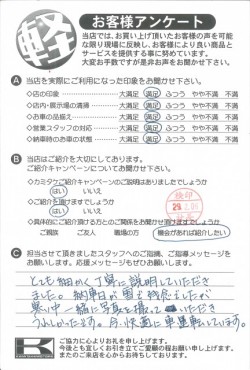 軽
お客様アンケート
当店では、お買い上げ頂いたお客様の声を可能
な限り現場に反映し、お客様により良い商品と
サービスを提供する事に努めています。
大変お手数ですが是非お声をお聞かせ下さい。
A 当店を実際にご利用になった印象をお聞かせ下さい。
◇店の印象 大満足 満足 ふつう やや不満 不満
◇店内・展示場の清掃 大満足 満足 ふつう やや不満 不満
◇お車の品揃え 大満足 満足 ふつう やや不満 不満
◇営業スタッフの対応 大満足 満足 ふつう やや不満 不満
◇納車時のお車の状態 大満足 満足 ふつう やや不満 不満
B 当店はご紹介を大切にしております。
◇カミタケご紹介キャンペーンのご説明はありましたでしょうか
はい いいえ
◇ご紹介を頂けますでしょうか
はい いいえ
検印
◇具体的にご紹介頂ける方とのご関係をお聞かせ頂けますでしょうか
ご親族 ご友人 職場の方 機会があれば紹介したい
C 担当させて頂きましたスタッフへのご指摘、ご指導メッセージを
お願いします。応援メッセージもぜひお願いします。
とても細かく丁寧に説明していただき
ました。納車日が雪で
寒い中一緒に写真を撮っていただき
うれしかったです。今、快適に運転しています。
K
ご協力に心よりお礼を申し上げます。
今後とも宜しくお引き立てご愛顧の程お願い申し上げます。
またのご来店を心からお待ちしております。